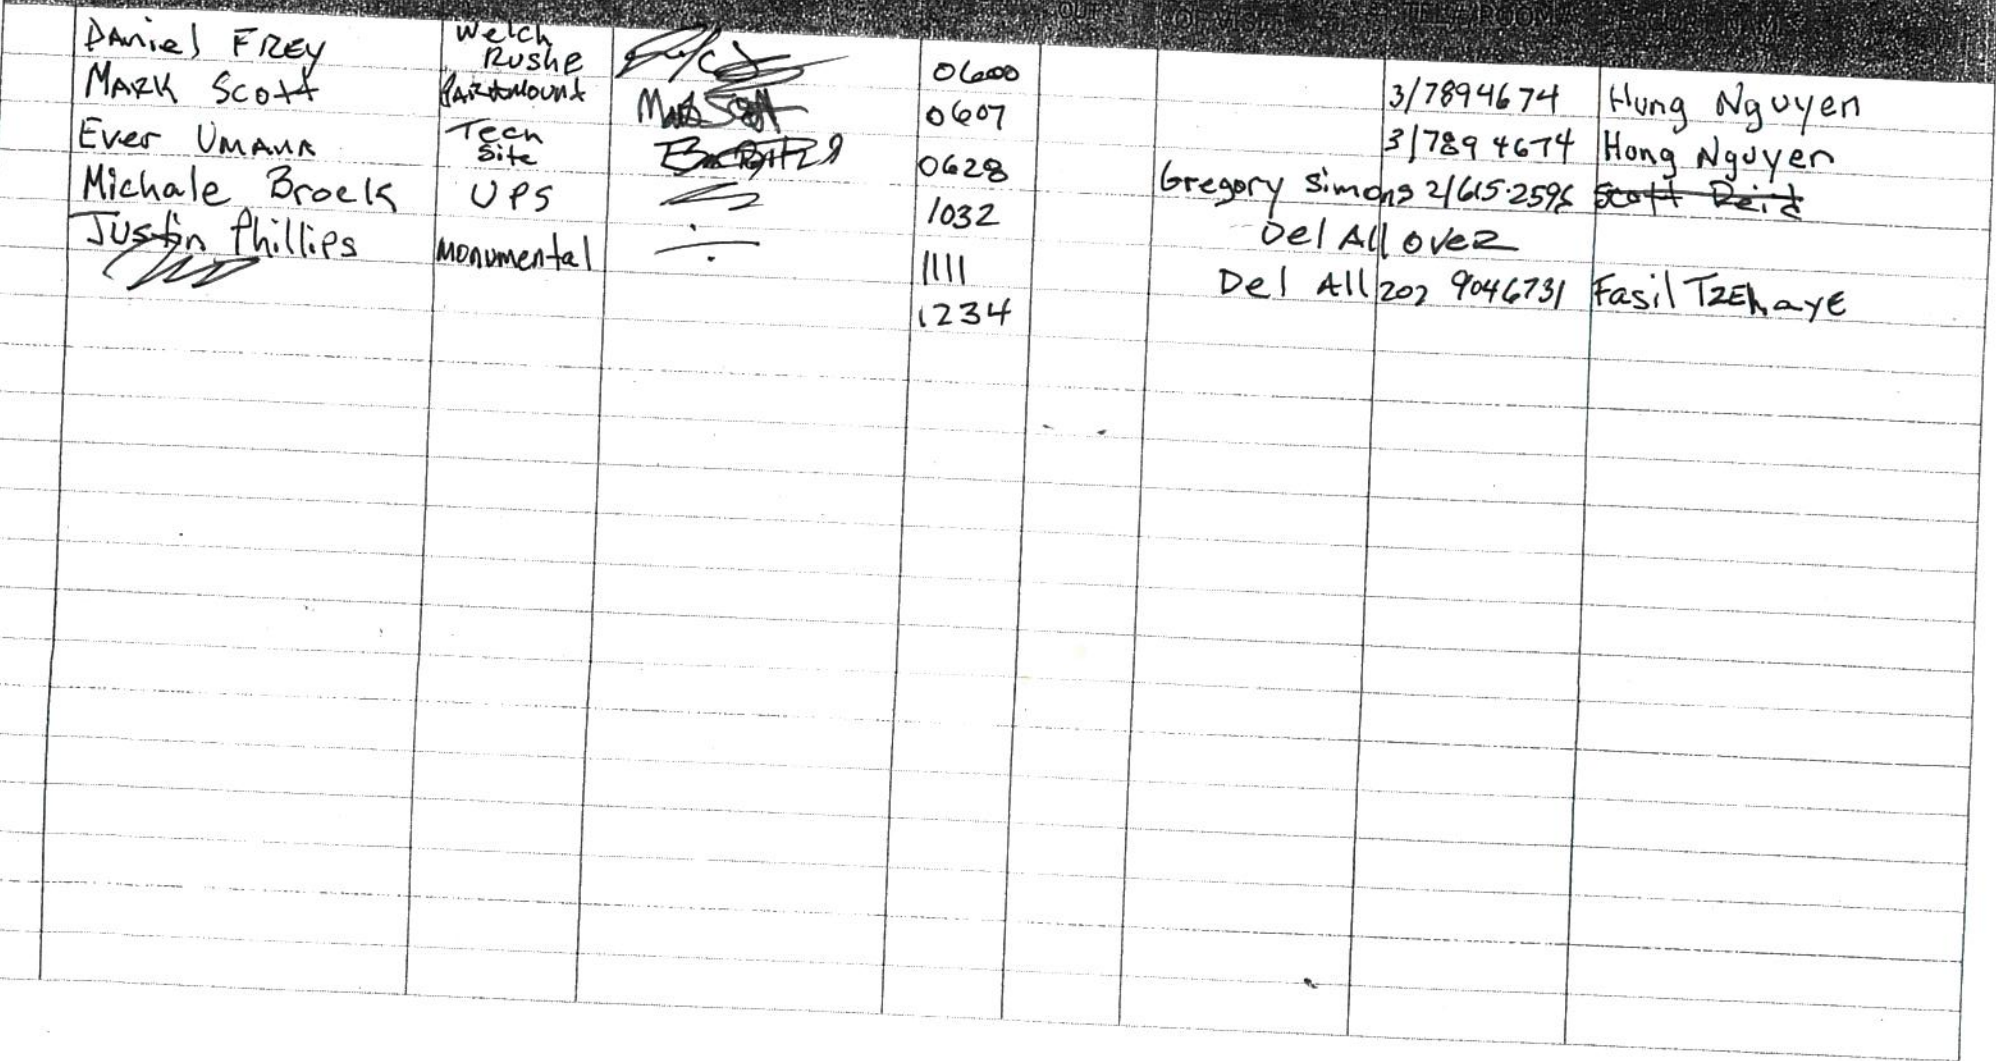 OUT
Daniel FREY Welch Rushe 0600 3/7894674 Hung Nguyen
MARK Scott PARAMOUNT Mark Scott 0607 3/789 4674 Hong Nguyen
Ever UMANA Tech Site 0628 Gregory Simons 2/615-2596 Scott Reid
Michale Brock UPS 1032 Del All oveR
Justin Phillips Monumental 1111 Del All 202 9046731 Fasil TZEhayE
1234